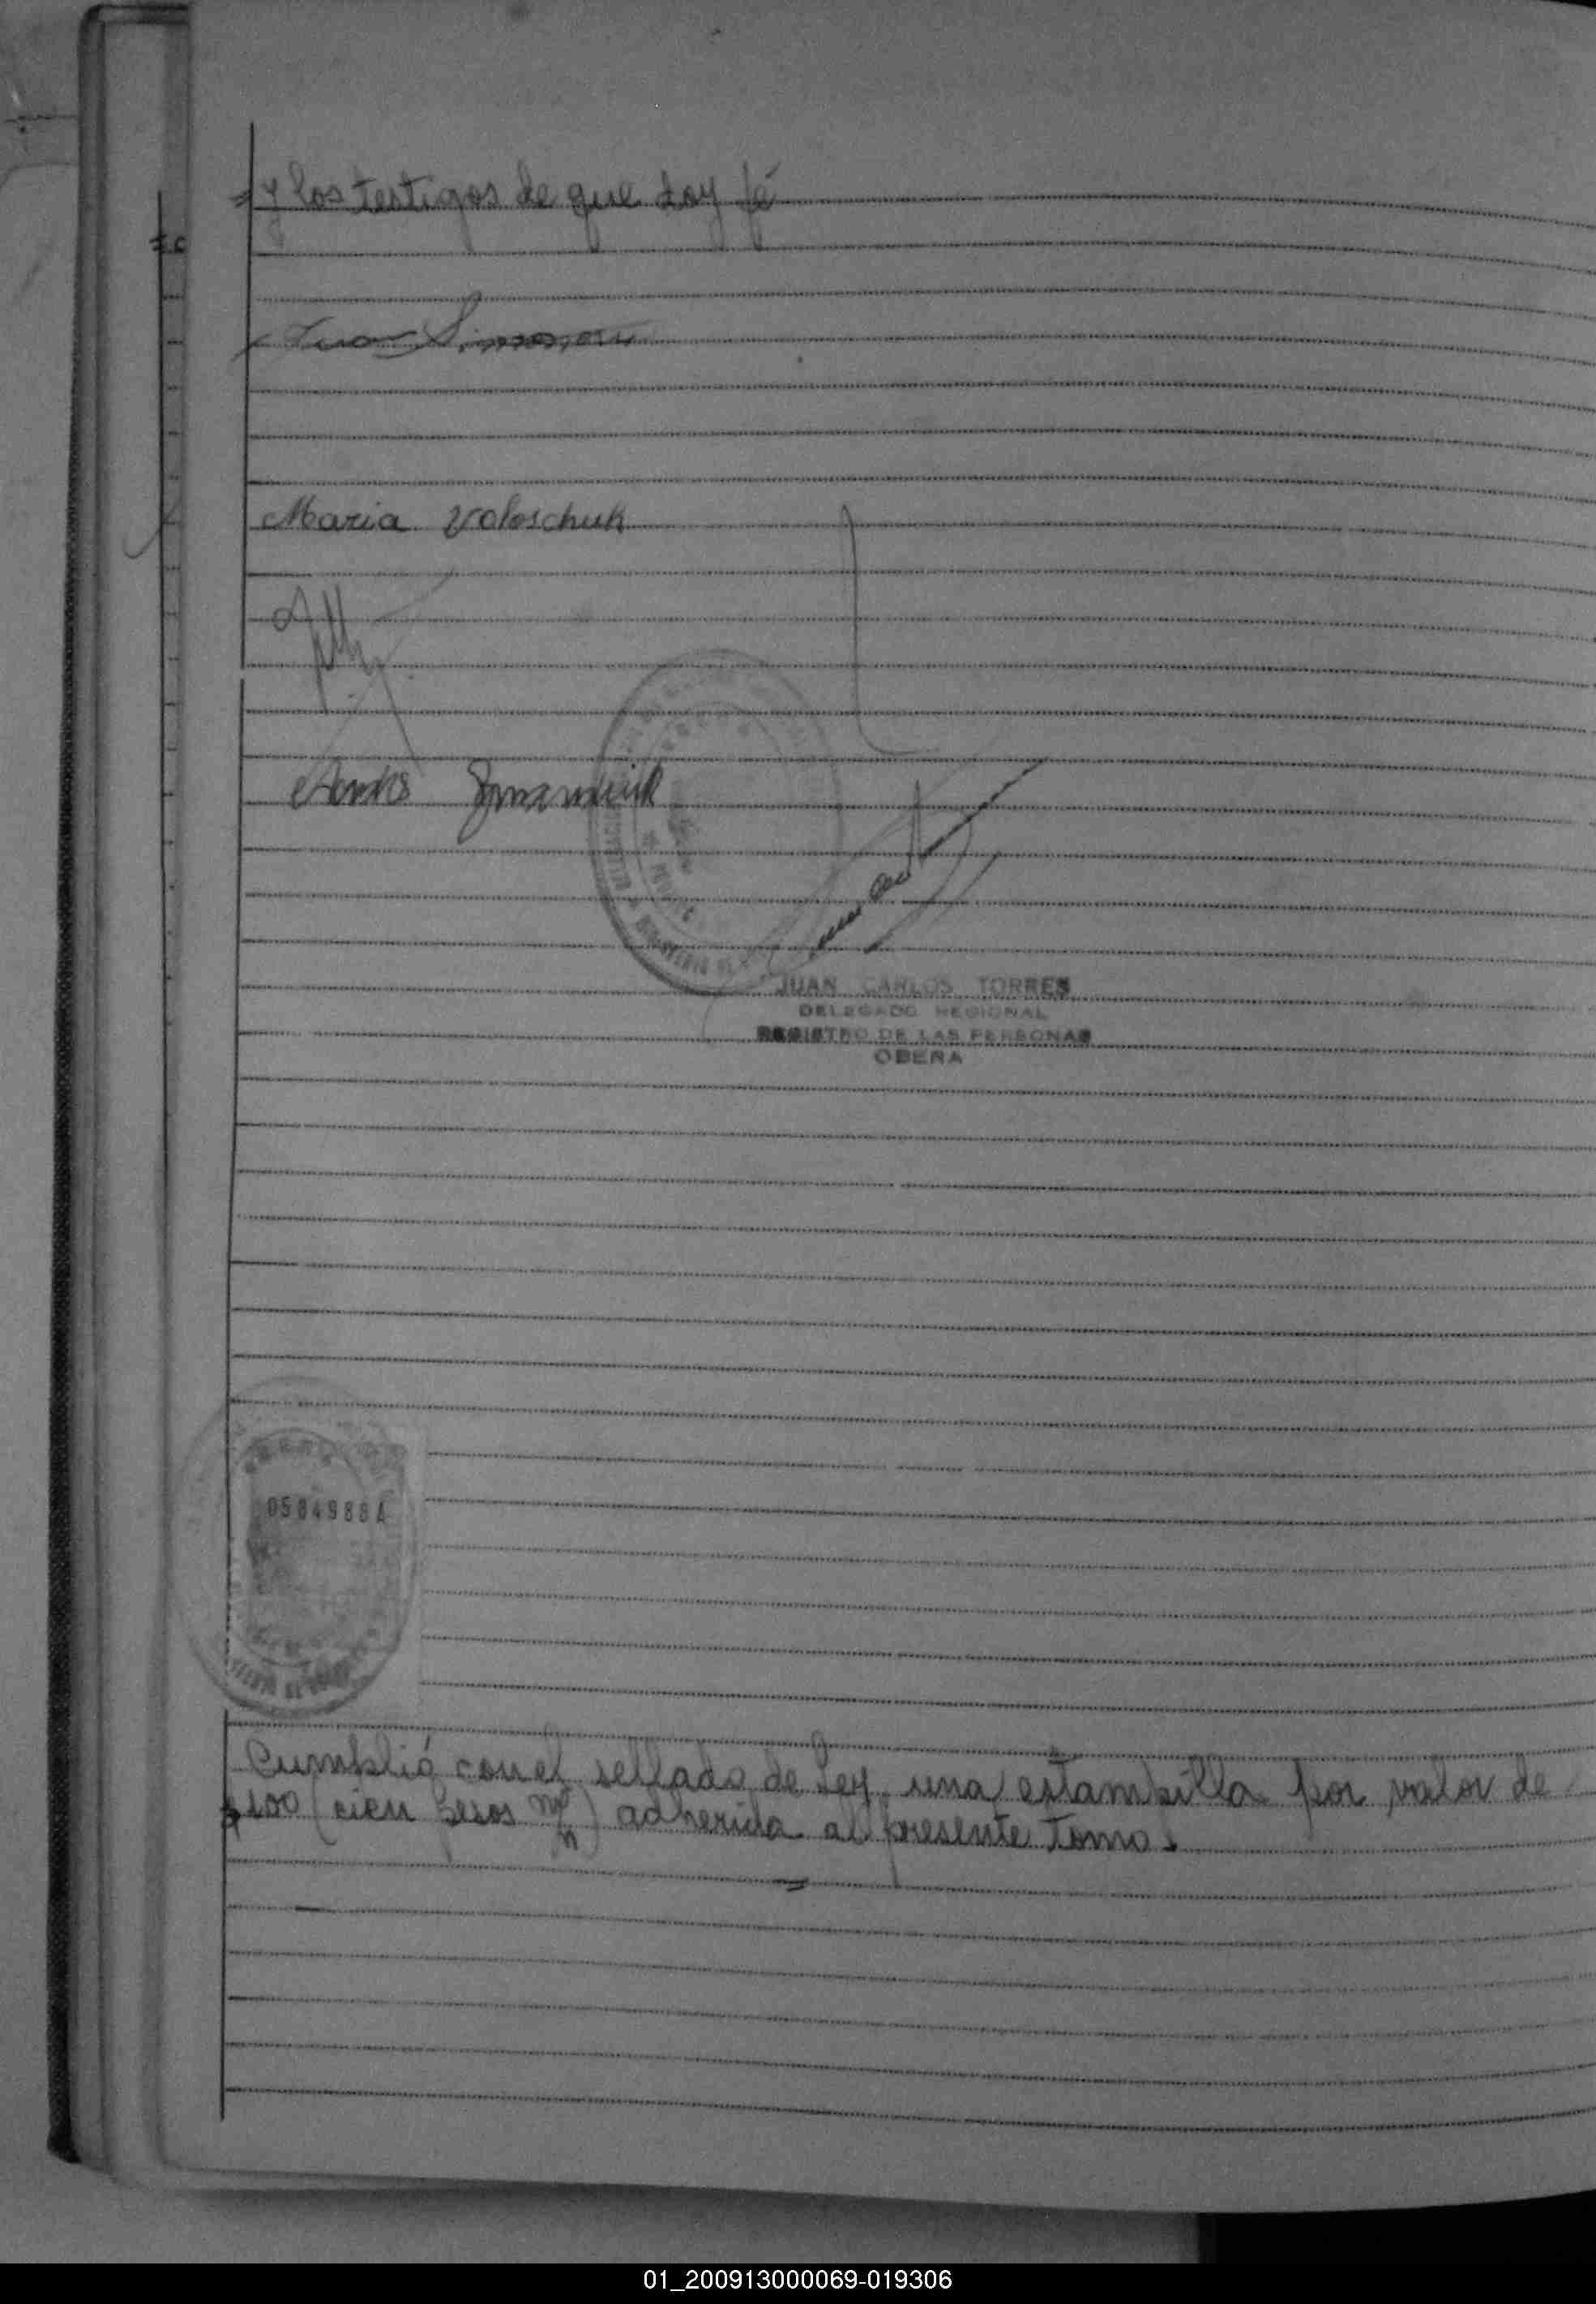 y los testigos de que doy fé
Juan
Maria Voloschuk
JUAN CARLOS TORRES
DELEGADO REGIONAL
REGISTRO DE LAS PERSONAS
OBERA
0584988A
Cumplió con el sellado de Ley, una estampilla por valor de
$100 (cien pesos m/n) adherida al presente tomo.
01_200913000069-019306